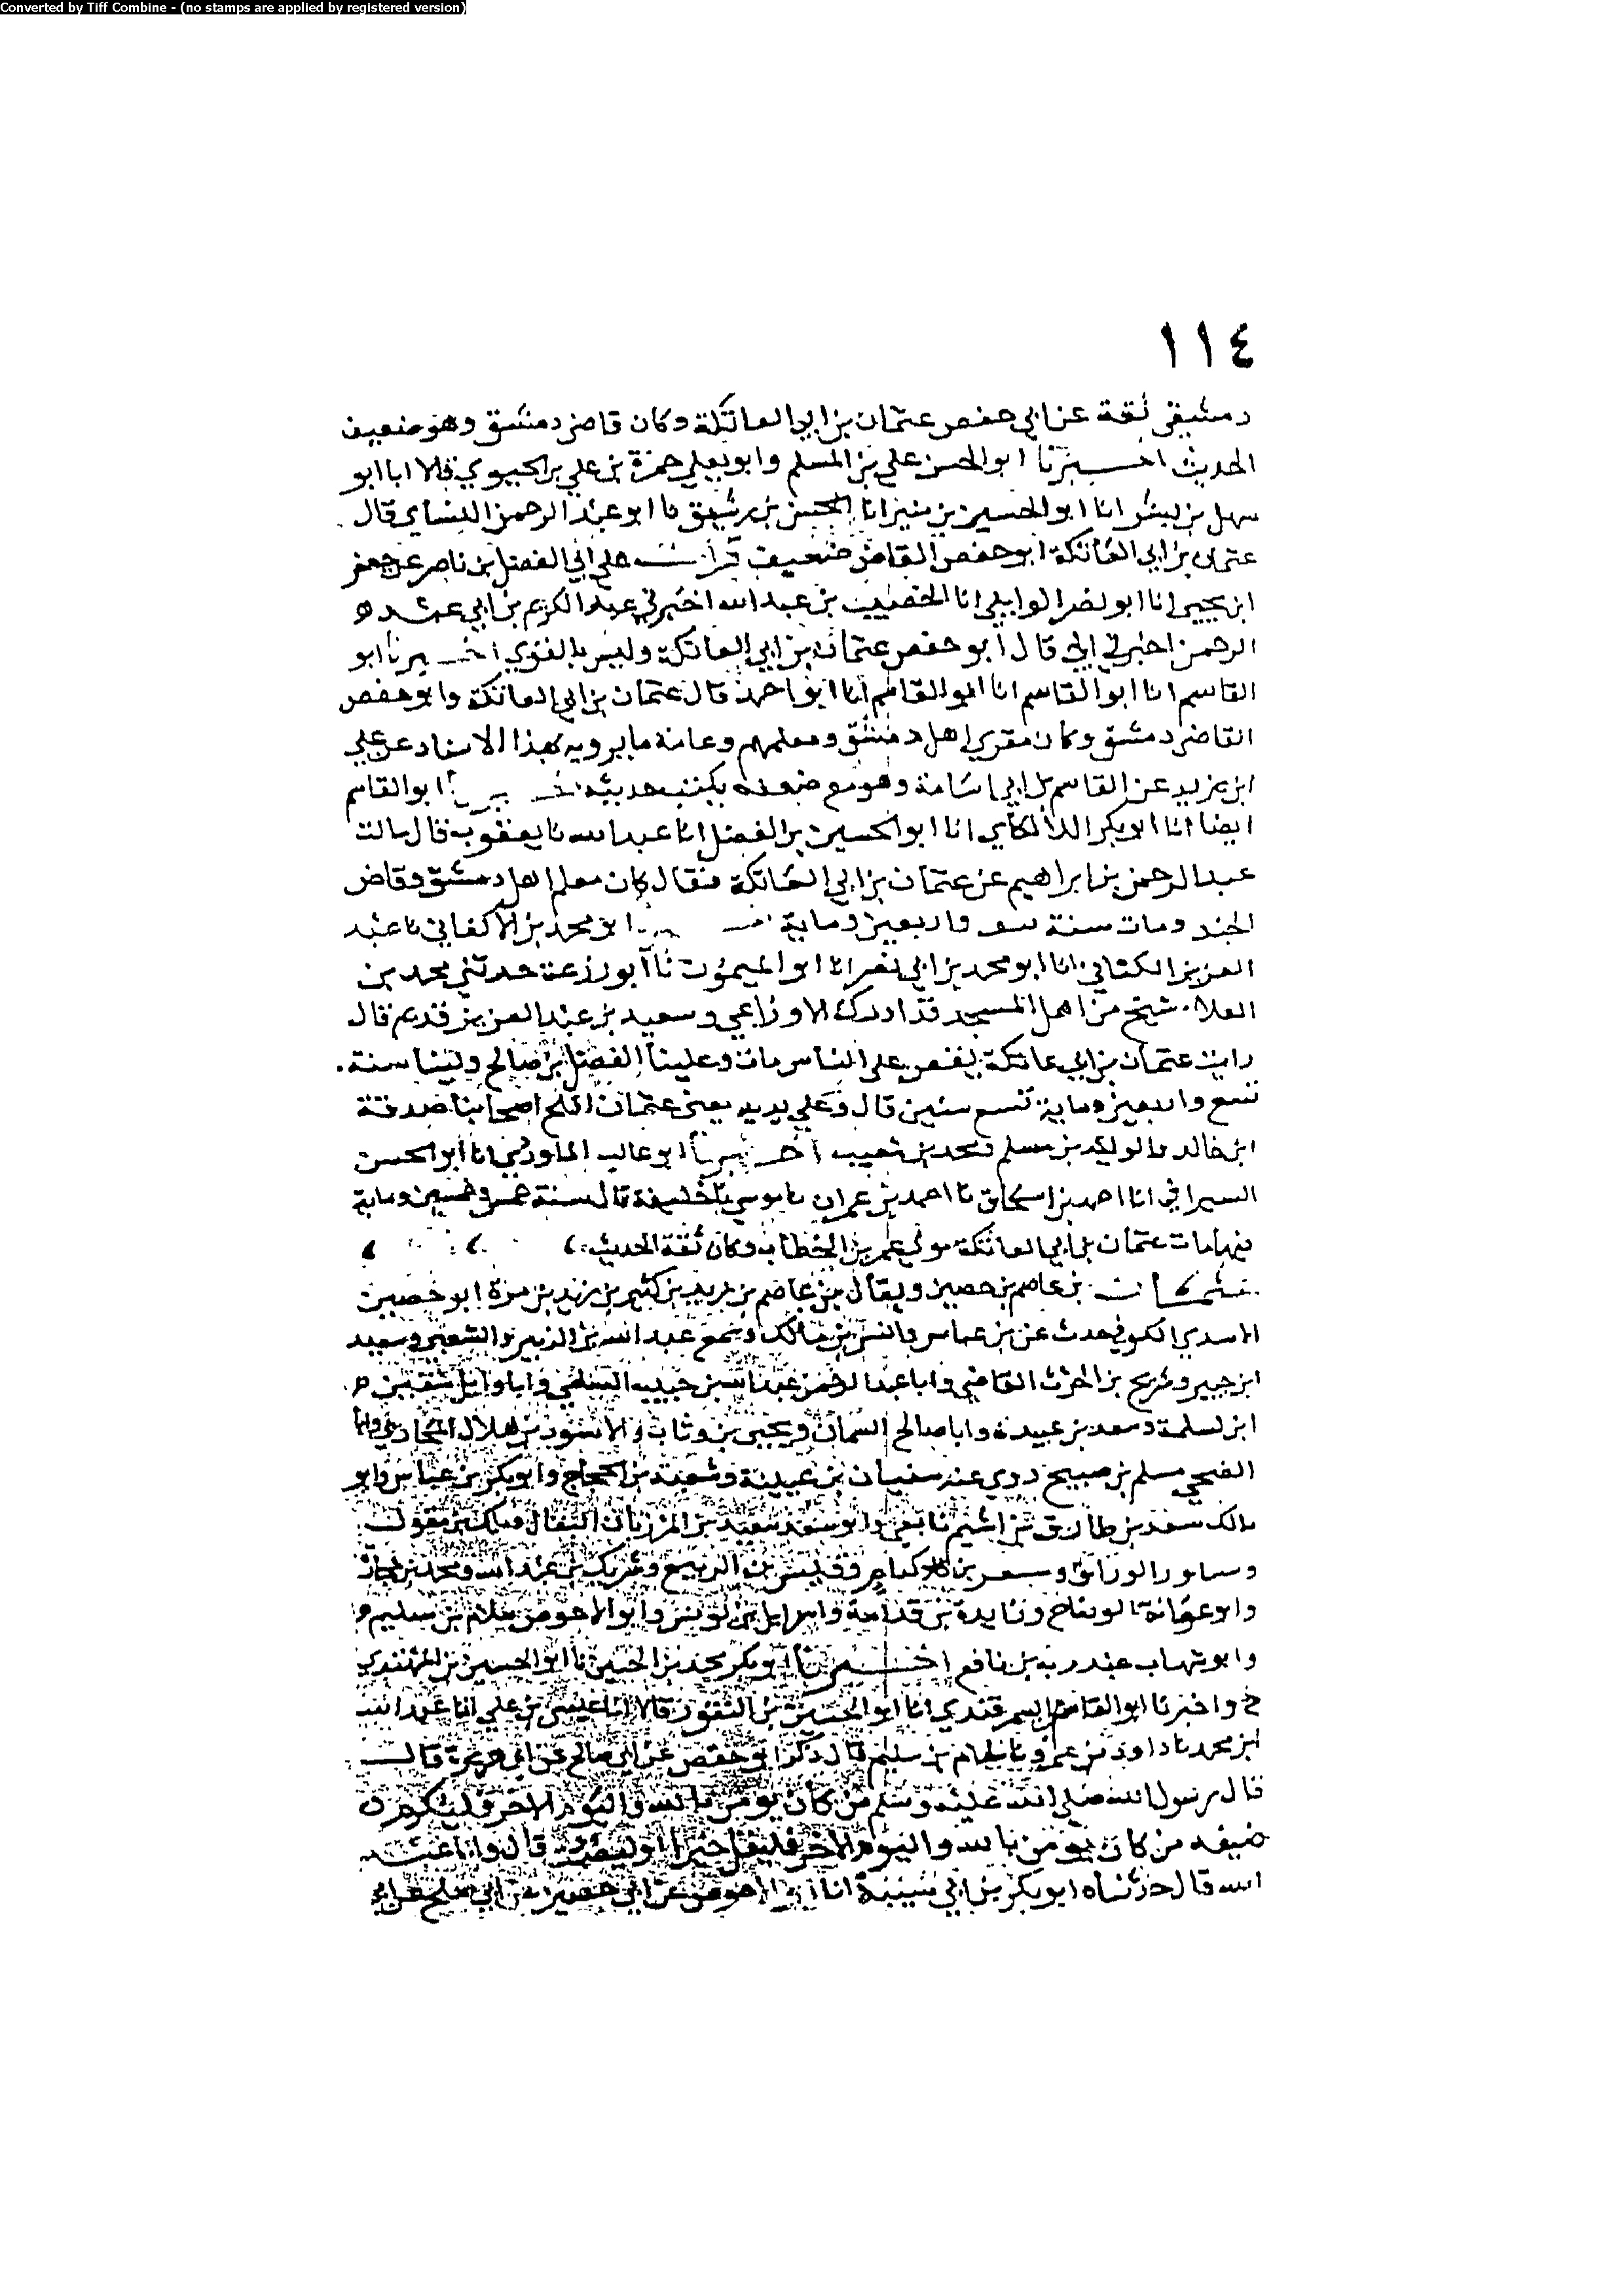 Converted by Tiff Combine - (no stamps are applied by registered version)
١١٤
دمشقي ثقة عن ابي حفص عثمان بن ابي العاتكة وكان قاص دمشق وهو ضعيف
الحديث اخبرنا ابو الحسن علي بن المسلم وابو يعلى حمزة بن علي بن الحبوبي قالا انا ابو
سهل بن بشر انا ابو الحسين بن منير انا الحسن بن رشيق نا ابو عبد الرحمن النساي قال
عثمان بن ابي العاتكة ابو حفص القاص ضعيف قرات على ابي الفضل بن ناصر عن جعفر
ابن يحيى انا ابو نصر الوايلي انا الخصيب بن عبد الله اخبرني عبد الكريم بن ابي عبد
الرحمن اخبرني ابي قال ابو حفص عثمان بن ابي العاتكة وليس بالقوي اخبرنا ابو
القاسم انا ابو القاسم انا ابو القاسم انا ابو احمد قال عثمان بن ابي العاتكة وابو حفص
القاص دمشقي وكان مقري اهل دمشق ومعلمهم وعامة ما يرويه بهذا الاسناد عن علي
ابن يزيد عن القاسم عن ابي امامة وهو مع ضعفه يكتب حديثه اخبرنا ابو القاسم
ايضا انا ابو بكر اللالكاي انا ابو الحسين بن الفضل انا عبد الله نا يعقوب قال سالت
عبد الرحمن بن ابراهيم عن عثمان بن ابي العاتكة فقال كان معلم اهل دمشق وقاص
الجند ومات سنة واربعين وماية ابو محمد بن الاكفاني نا عبد
العزيز الكتاني انا ابو محمد بن ابي نصر انا ابو الميمون نا ابو زرعة حدثني محمد بن
العلا شيخ من اهل المسجد قد ادرك الاوزاعي وسعيد بن عبد العزيز قديم قال
رايت عثمان بن ابي عاتكة يقص على الناس مات وعلينا الفضل بن صالح ولينا سنة
تسع واربعين وماية تسع سنين قال وعلى يديه يعني عثمان اصحابنا صدقة
ابن خالد والوليد بن مسلم ومحمد بن شعيب اخبرنا ابو غالب الماوردي انا ابو الحسن
السيرافي انا احمد بن اسحاق نا احمد بن عمران نا موسى نا خليفة قال سنة خمس وخمسين وماية
فيها مات عثمان بن ابي العاتكة مولى عمر بن الخطاب وكان ثقة الحديث
عثمان بن عاصم بن حصين ويقال بن عاصم بن زيد بن كثير بن زيد بن مرة ابو حصين
الاسدي الكوفي حدث عن بن عباس وانس بن مالك وسمع عبد الله بن الزبير والشعبي وسعيد
ابن جبير وشريح بن الحرث القاضي وابا عبد الرحمن عبد الله بن حبيب السلمي وابا وايل شقيق
ابن سلمة وسعد بن عبيدة وابا صالح السمان ويحيى بن وثاب والاسود بن هلال المحاربي وابا
الضحى مسلم بن صبيح روي عنه سفيان بن عيينة وشعبة بن الحجاج وابو بكر بن عياش وابو
مالك سعد بن طارق بن اشيم تابعي وابو سعد سعيد بن المرزبان البقال ومالك بن مغول
وساور الوراق ومسعر بن كدام وقيس بن الربيع وشريك بن عبد الله ومحمد بن
وابو عوانة الوضاح وزايدة بن قدامة واسرايل بن يونس وابو الاحوص سلام بن سليم
وابو شهاب عبد ربه بن نافع اخبرنا ابو بكر محمد بن الحسين نا ابو الحسين بن المهتدي
ح واخبرنا ابو القاسم السمرقندي انا ابو الحسين بن النقور قالا انا عيسى بن علي انا عبد الله
ابن محمد نا داود بن عمرو نا سلام بن سليم قال ذكر ابو حفص عن ابي صالح عن ابي هريرة قال
قال رسول الله صلى الله عليه وسلم من كان يومن بالله واليوم الاخر فليكرم
ضيفه من كان يومن بالله واليوم الاخر فليقل خيرا او ليصمت قال وانا عبد
الله قال حدثناه ابو بكر بن ابي شيبة انا ابو الاحوص عن ابي حصين عن ابي صالح عن ابي